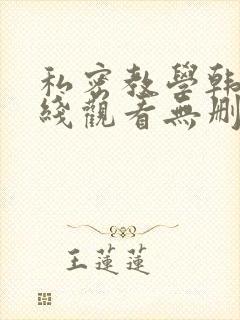 私密教學韩
綫觀看無刪
王蓮蓮